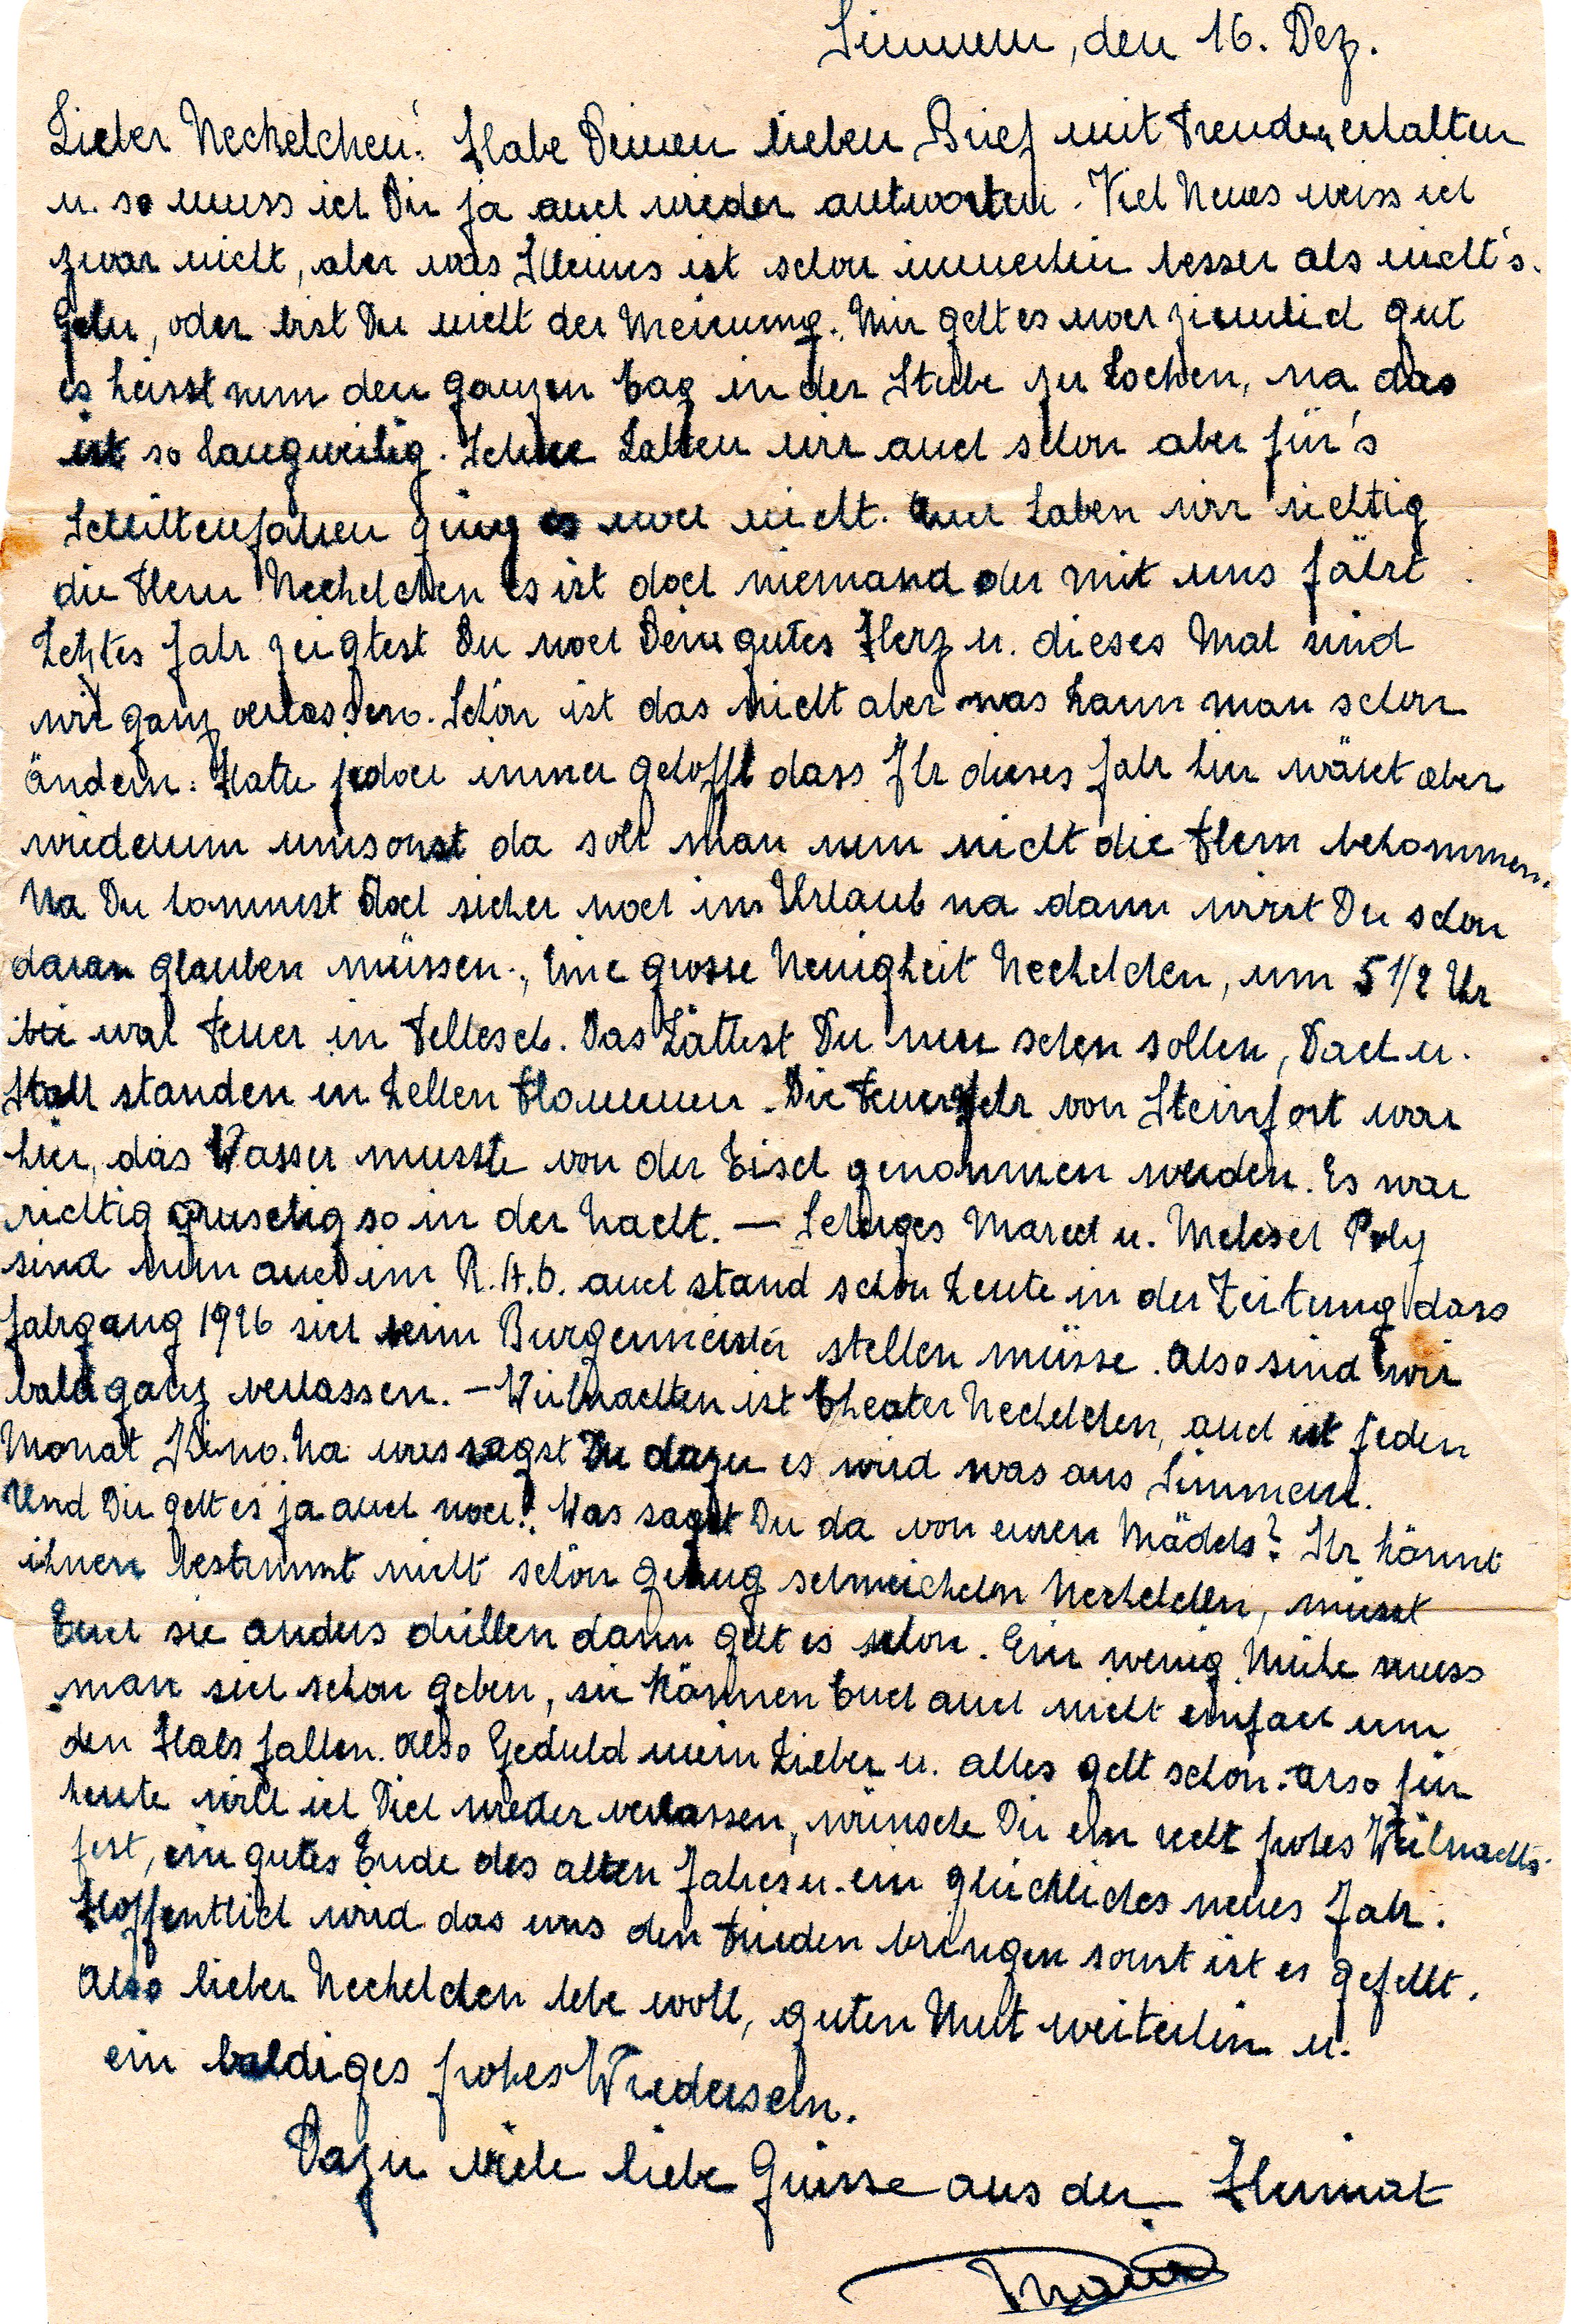 Simmern, den 16. Dez.
Lieber Neckelchen! Habe Deinen lieben Brief mit Freuden erhalten
u. so muss ich Dir ja auch wieder antworten. Viel Neues weiss ich
zwar nicht, aber was Kleines ist schon immerhin besser als nicht's.
Geln, oder bist Du nicht der Meinung. Mir geht es noch ziemlich gut
es heisst nun den ganzen Tag in der Stube zu hocken, na das
ist so langweilig. Schnee hatten wir auch schon aber für's
Schlittenfahren ging es noch nicht. Auch haben wir richtig
die Flem Neckelchen es ist doch niemand der mit uns fährt
Letztes Jahr zeigtest Du noch Dein gutes Herz u. dieses Mal sind
wir ganz verlassen. Schön ist das nicht aber was kann man schon
ändern. Hatte jedoch immer gehofft dass Ihr dieses Jahr hier wäret aber
wiederum umsonst da soll man nun nicht die Flem bekommen.
Na Du kommst doch sicher noch im Urlaub na dann wirst Du schon
daran glauben müssen. Eine grosse Neuigkeit Neckelchen, um 5 1/2 Uhr
war Feuer in Fellesch. Das hättest Du nun sehen sollen, Dach u.
Stall standen in hellen Flammen. Die Feuerwehr von Steinfort war
hier, das Wasser musste von der Eisch genommen werden. Es war
richtig gruselig so in der Nacht. — Marcel u. Poly
sind nun auch im R.A.D. auch stand schon heute in der Zeitung dass
Jahrgang 1926 sich beim Burgemeister stellen müsse. Also sind wir
bald ganz verlassen. — Weihnachten ist Theater Neckelchen, auch ist jeden
Monat Kino. Na was sagst Du dazu es wird was aus Simmern.
Und Dir geht es ja auch noch! Was sagst Du da von euren Mädels? Ihr könnt
ihnen bestimmt nicht schön genug schmeicheln Neckelchen, müsst
Euch sie anders drillen dann geht es schon. Ein wenig Mühe muss
man sich schon geben, sie können Euch auch nicht einfach um
den Hals fallen. Also Geduld mein Lieber u. alles geht schon. Also für
heute will ich Dich wieder verlassen, wünsche Dir ein recht frohes Weihnachts-
fest, ein gutes Ende des alten Jahres u. ein glückliches neues Jahr.
Hoffentlich wird das uns den Frieden bringen sonst ist es gefehlt.
Also lieber Neckelchen lebe wohl, guten Mut weiterhin u.
ein baldiges frohes Wiedersehn.
Dazu viele liebe Grüsse aus der Heimat